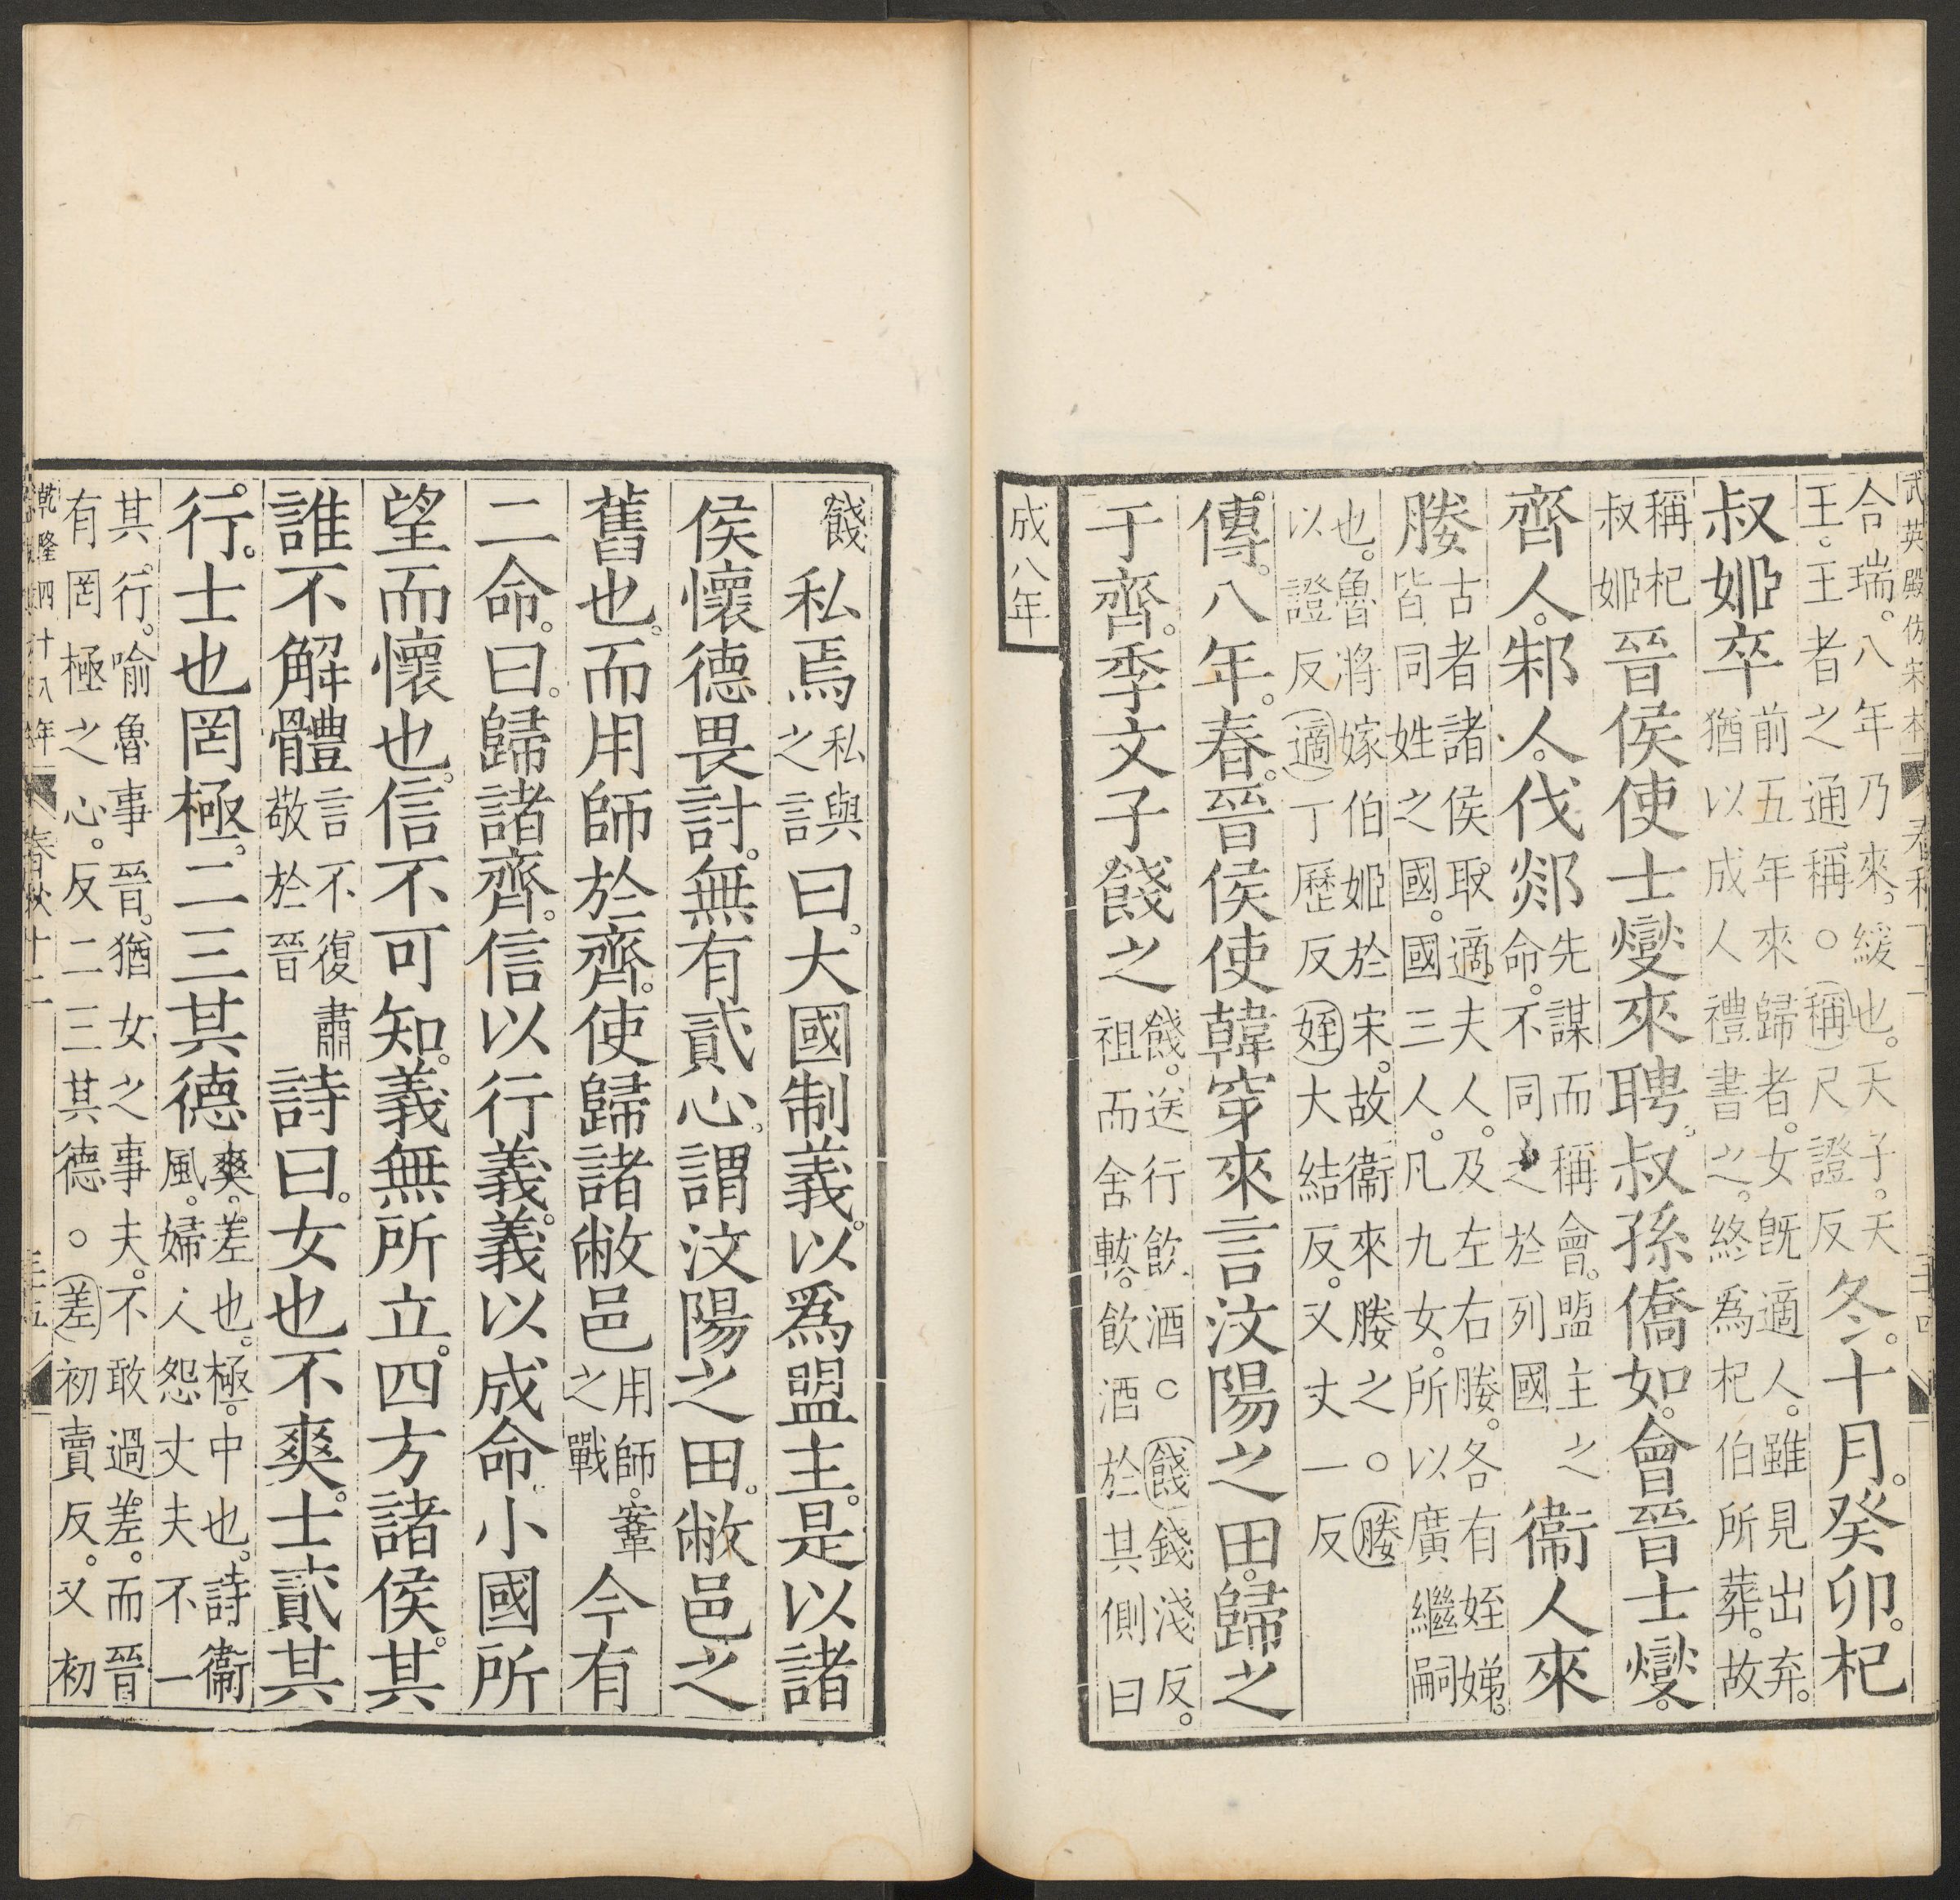 武英殿仿宋本
春秋十二
合瑞。八年乃來。緩也。天子。天
王。王者之通稱。○稱尺證反
冬。十月。癸卯。杞
叔姬卒
前五年來歸者。女既適人。雖見出弃。
猶以成人禮書之。終爲杞伯所葬。故
稱杞
叔姬
晉侯使士燮來聘。叔孫僑如。會晉士燮。
齊人。邾人。伐郯
先謀而稱會。盟主之
命。不同之於列國
衞人來
媵
古者諸侯取適。夫人。及左右媵。各有姪娣。
皆同姓之國。國三人。凡九女。所以廣繼嗣
也。魯將嫁伯姬於宋。故衞來媵之。○媵
以證反適丁歷反姪大結反。又丈一反
傳。八年。春。晉侯使韓穿來言汶陽之田。歸之
于齊。季文子餞之
餞。送行飲酒。○餞錢淺反。
祖而舍軷。飲酒於其側曰
成八年
餞
私焉
私與
之言
曰。大國制義。以爲盟主。是以諸
侯懷德畏討。無有貳心。謂汶陽之田。敝邑之
舊也。而用師於齊。使歸諸敝邑
用師。鞌
之戰
今有
二命。曰。歸諸齊。信以行義。義以成命。小國所
望而懷也。信不可知。義無所立。四方諸侯。其
誰不解體
言不復肅
敬於晉
詩曰。女也不爽。士貳其
行。士也罔極。二三其德
爽。差也。極。中也。詩衞
風。婦人怨丈夫不一
其行。喻魯事晉。猶女之事夫。不敢過差。而晉
有罔極之心。反二三其德。○差初賣反。又初
乾隆四十八年
春秋十二